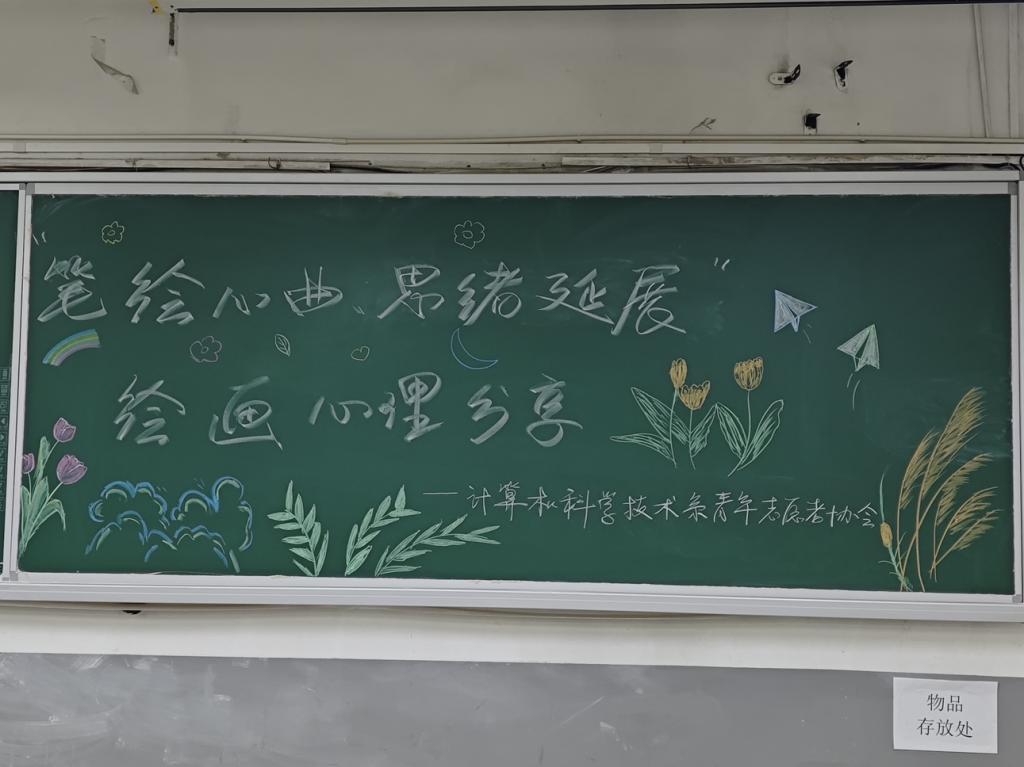 “笔绘心曲、思绪延展”
绘画心理分享
——计算机科学技术系青年志愿者协会
物品
存放处